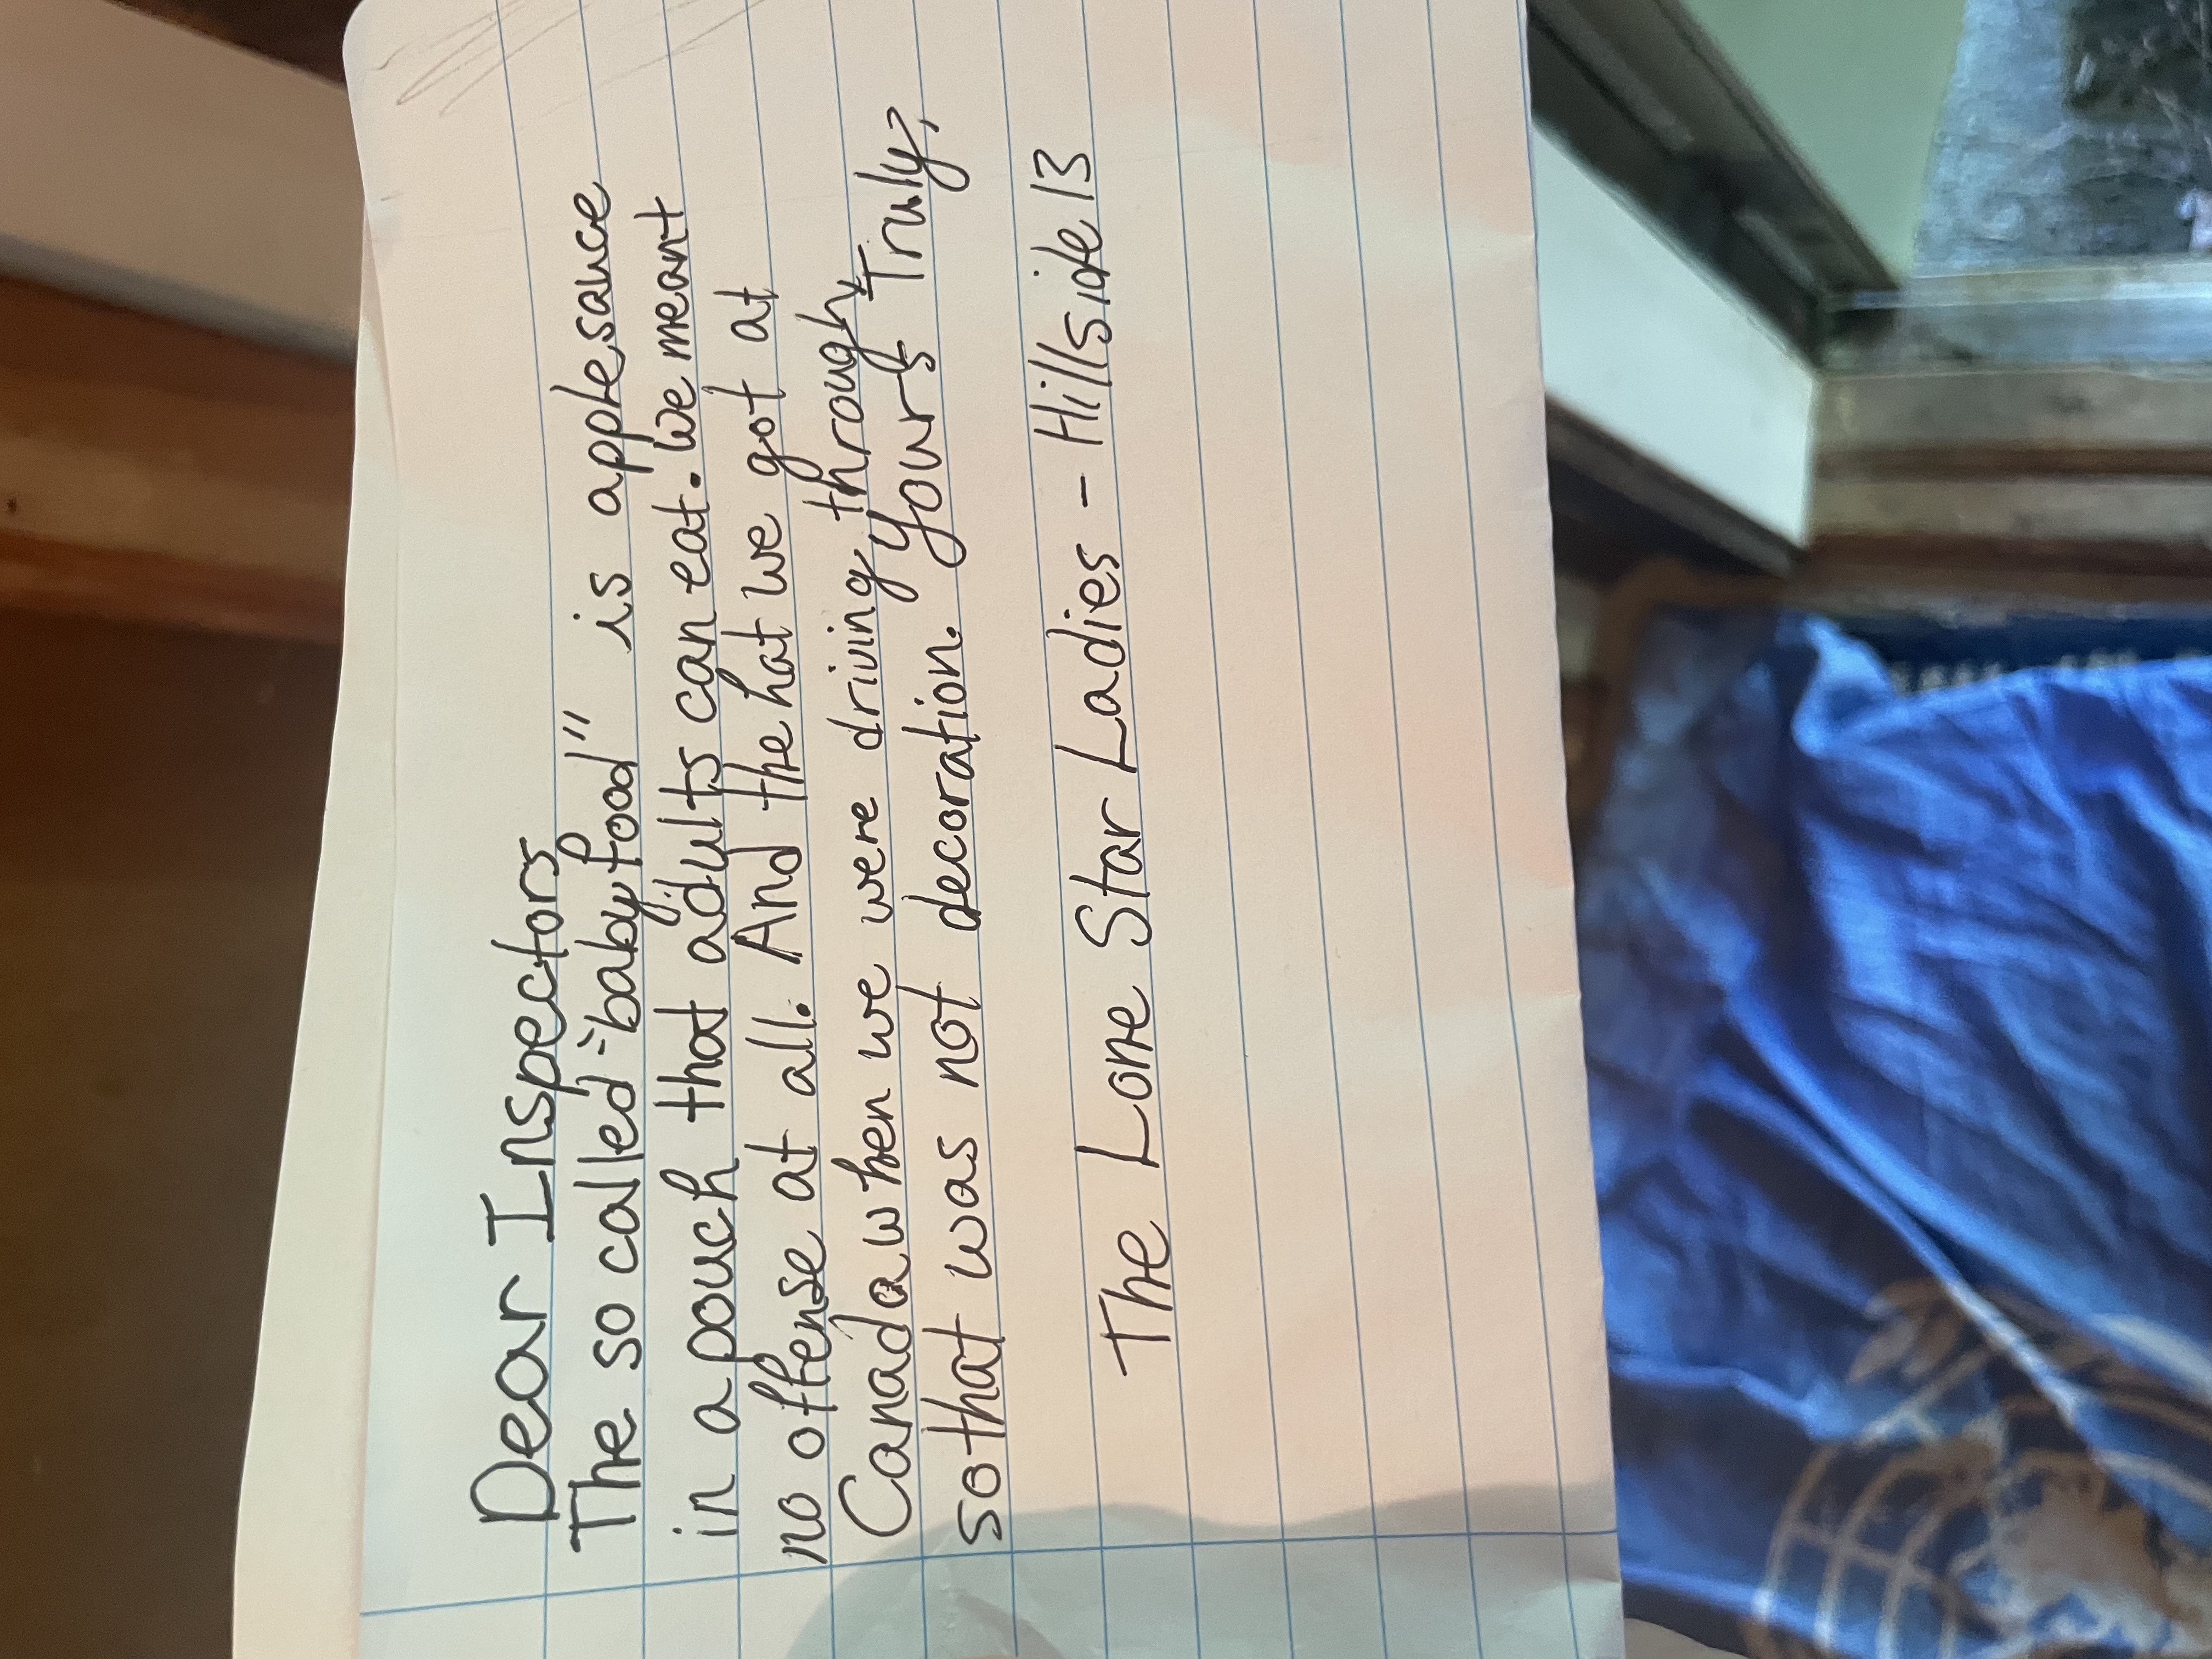 Dear Inspectors
The so called "babyfood" is applesauce
in a pouch that adults can eat. We meant
no offense at all. And the hat we got at
Canada when we were driving through,
so that was not decoration. Yours Truly,
The Lone Star Ladies - Hillside 13